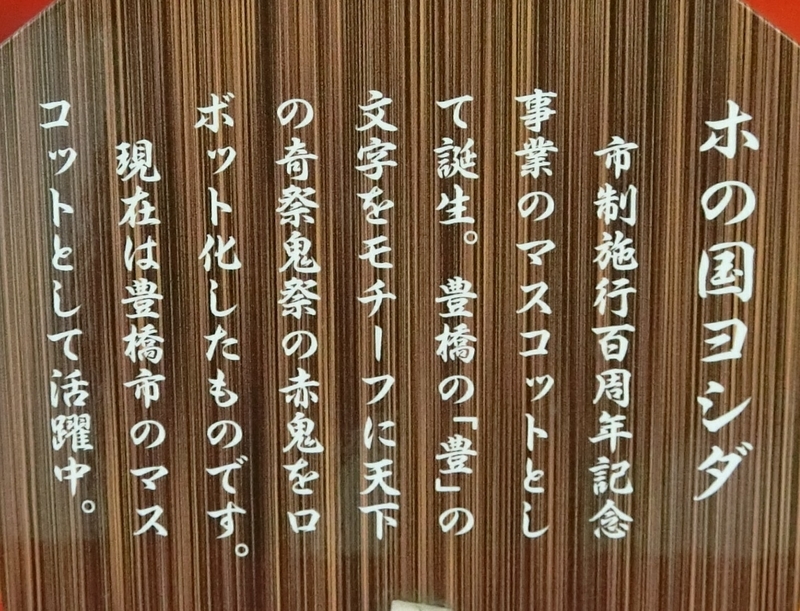 ホの国ヨシダ
市制施行百周年記念
事業のマスコットとし
て誕生。豊橋の「豊」の
文字をモチーフに天下
の奇祭鬼祭の赤鬼をロ
ボット化したものです。
現在は豊橋市のマス
コットとして活躍中。